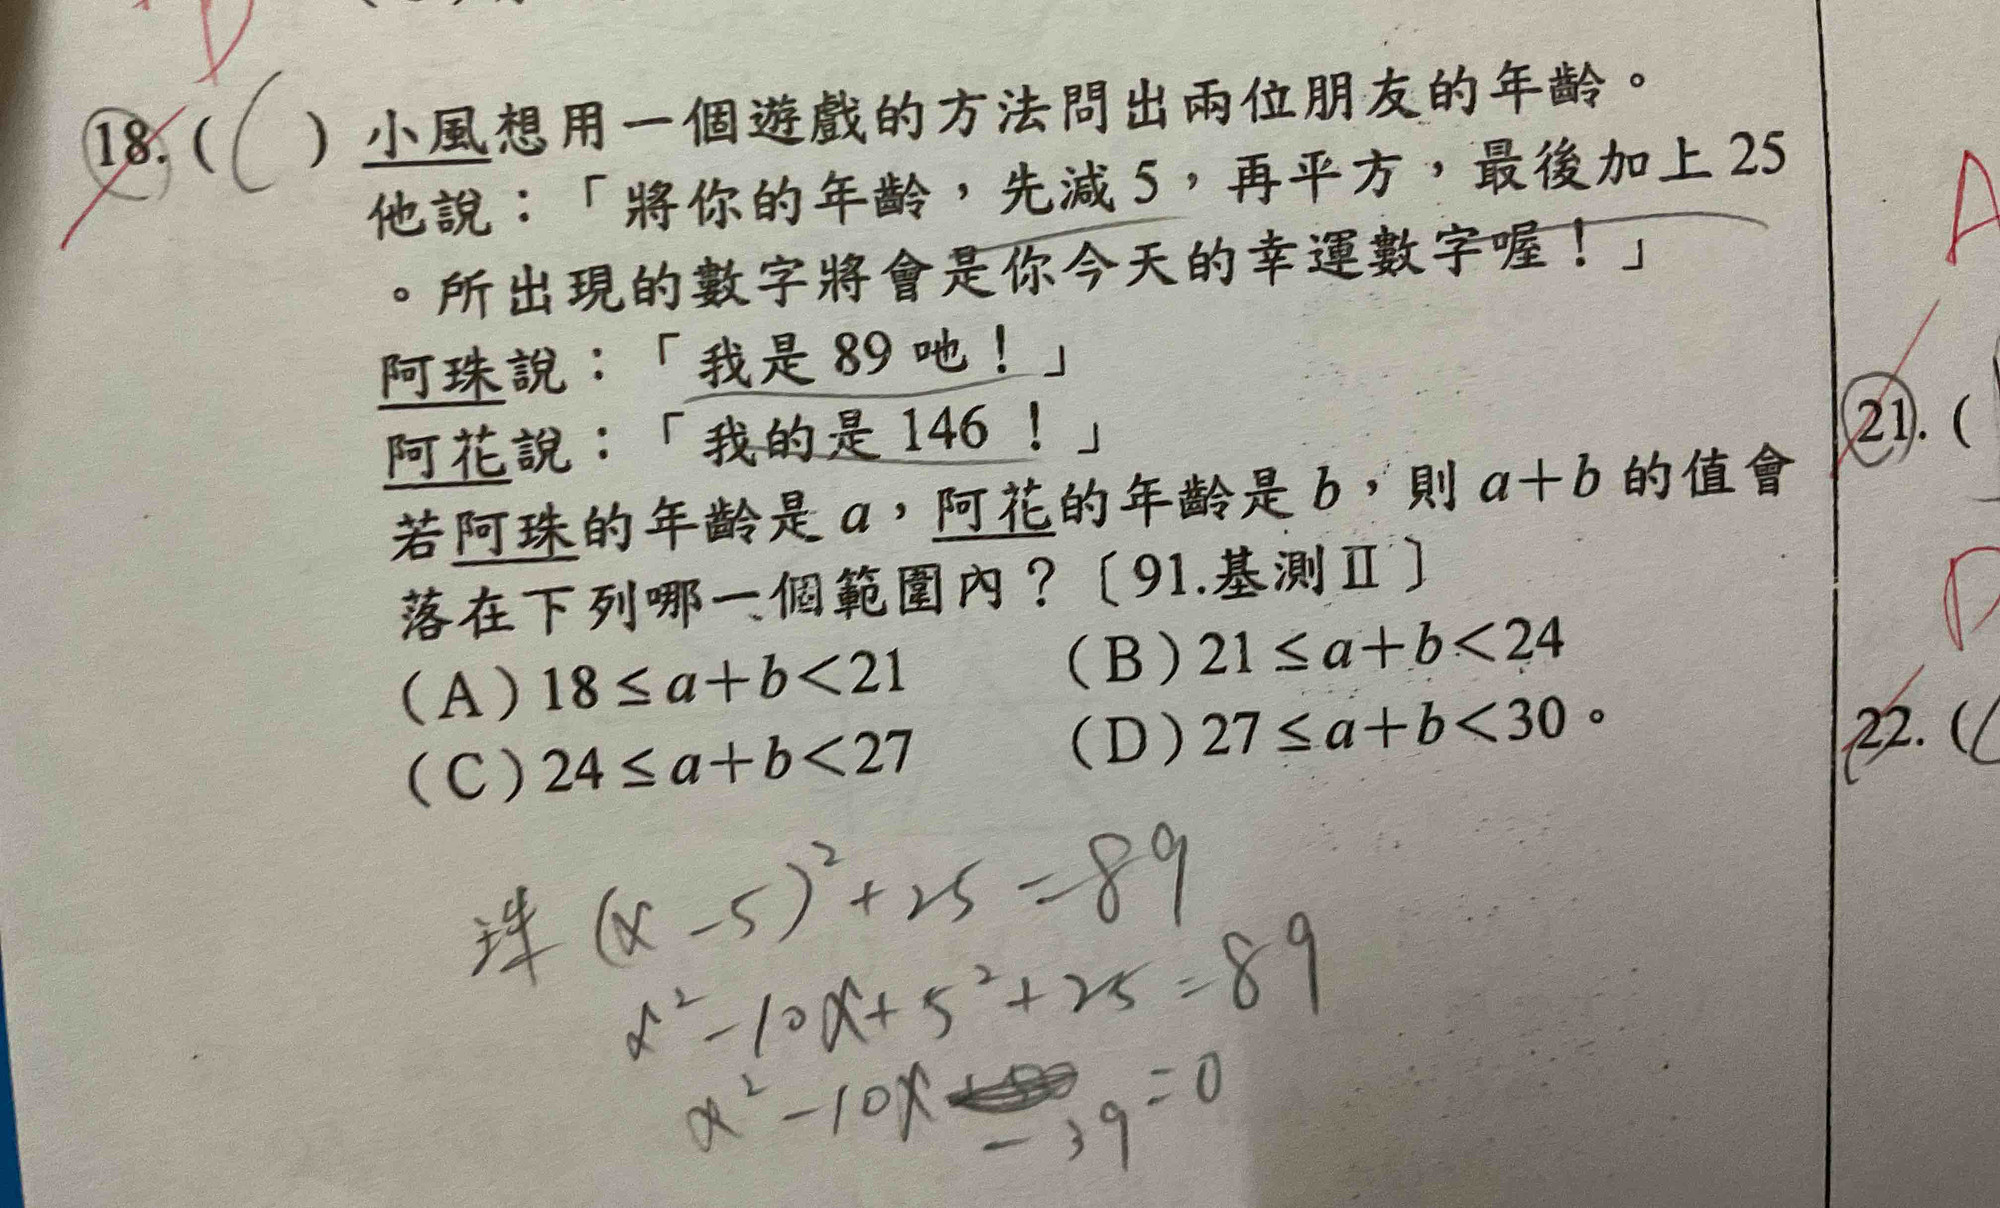 18. (C) 小風想用一個遊戲的方法問出兩位朋友的年齡。
他說：「將你的年齡，先減5，再平方，最後加上25
。所出現的數字將會是你今天的幸運數字喔！」
阿珠說：「我是89吔！」
阿花說：「我的是146！」
若阿珠的年齡是a，阿花的年齡是b，則a+b的值會
落在下列哪一個範圍內？〔91.基測Ⅱ〕
(A) 18≤a+b<21 (B) 21≤a+b<24
(C) 24≤a+b<27 (D) 27≤a+b<30。
珠 (x-5)²+25=89
x²-10x+5²+25=89
x²-10x-39=0
D
A
21. (
D
22. (